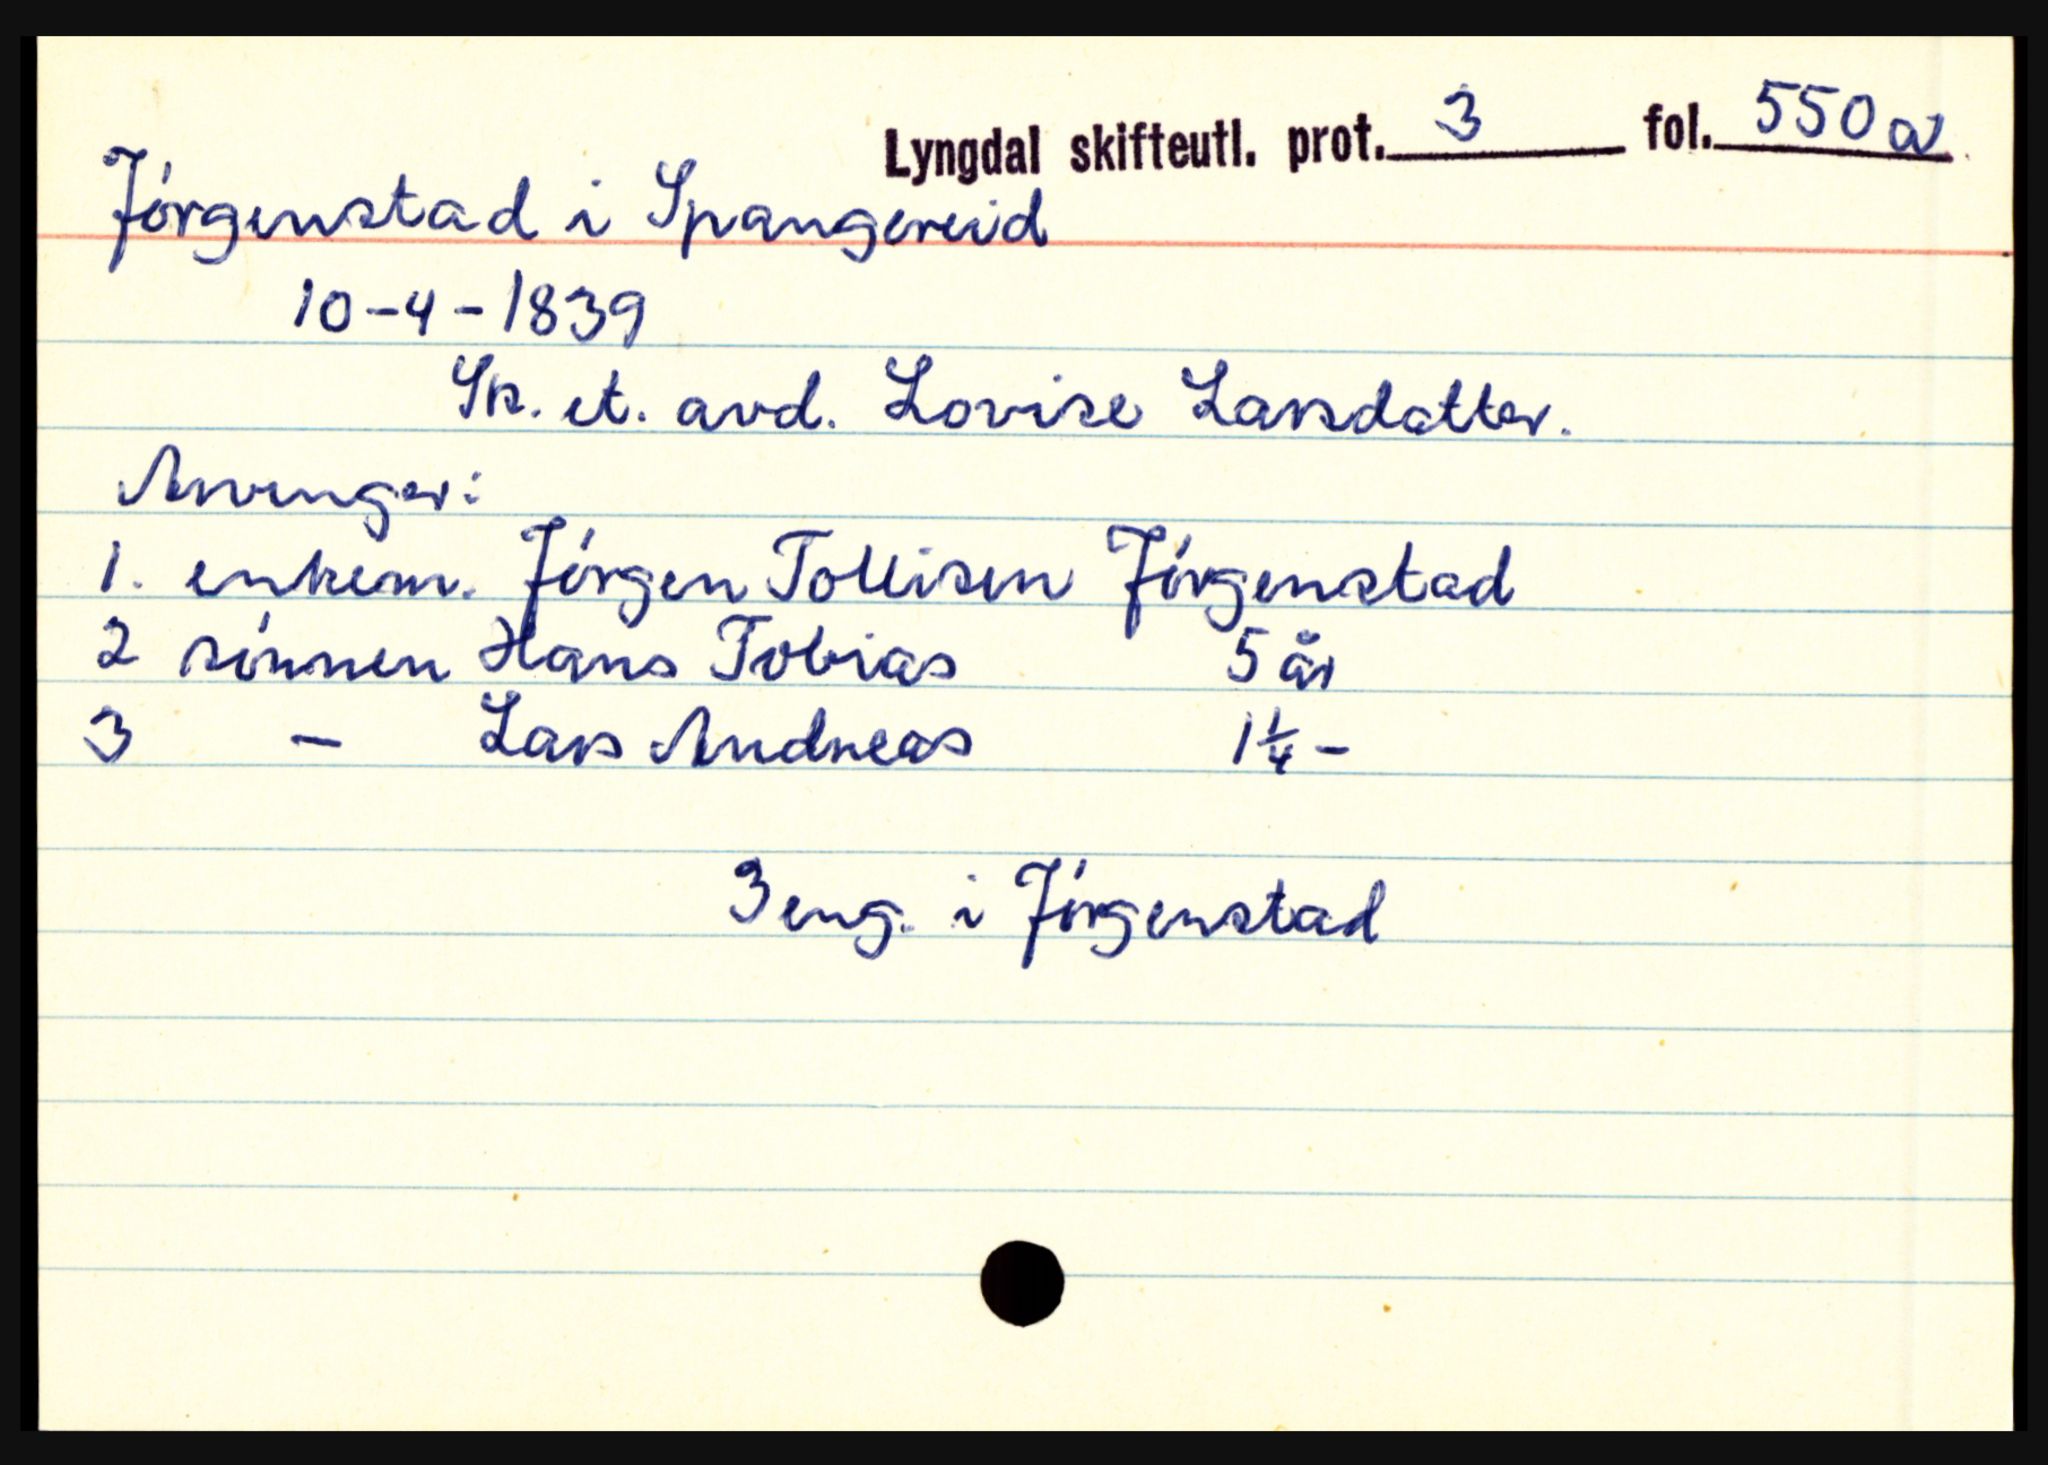 Lyngdal skifteutl. prot. 3 fol. 550 a
Jórgenstad i Spangereid
10-4-1839
Sk. et. avd. Lovise Larsdatter.
Arvinger:
1. enkem. Jórgen Tollisen Jórgenstad
2 sónnen Hans Tobias 5 år
3 - Lars Andreas 1 1/4 -
3 eng. i Jórgenstad